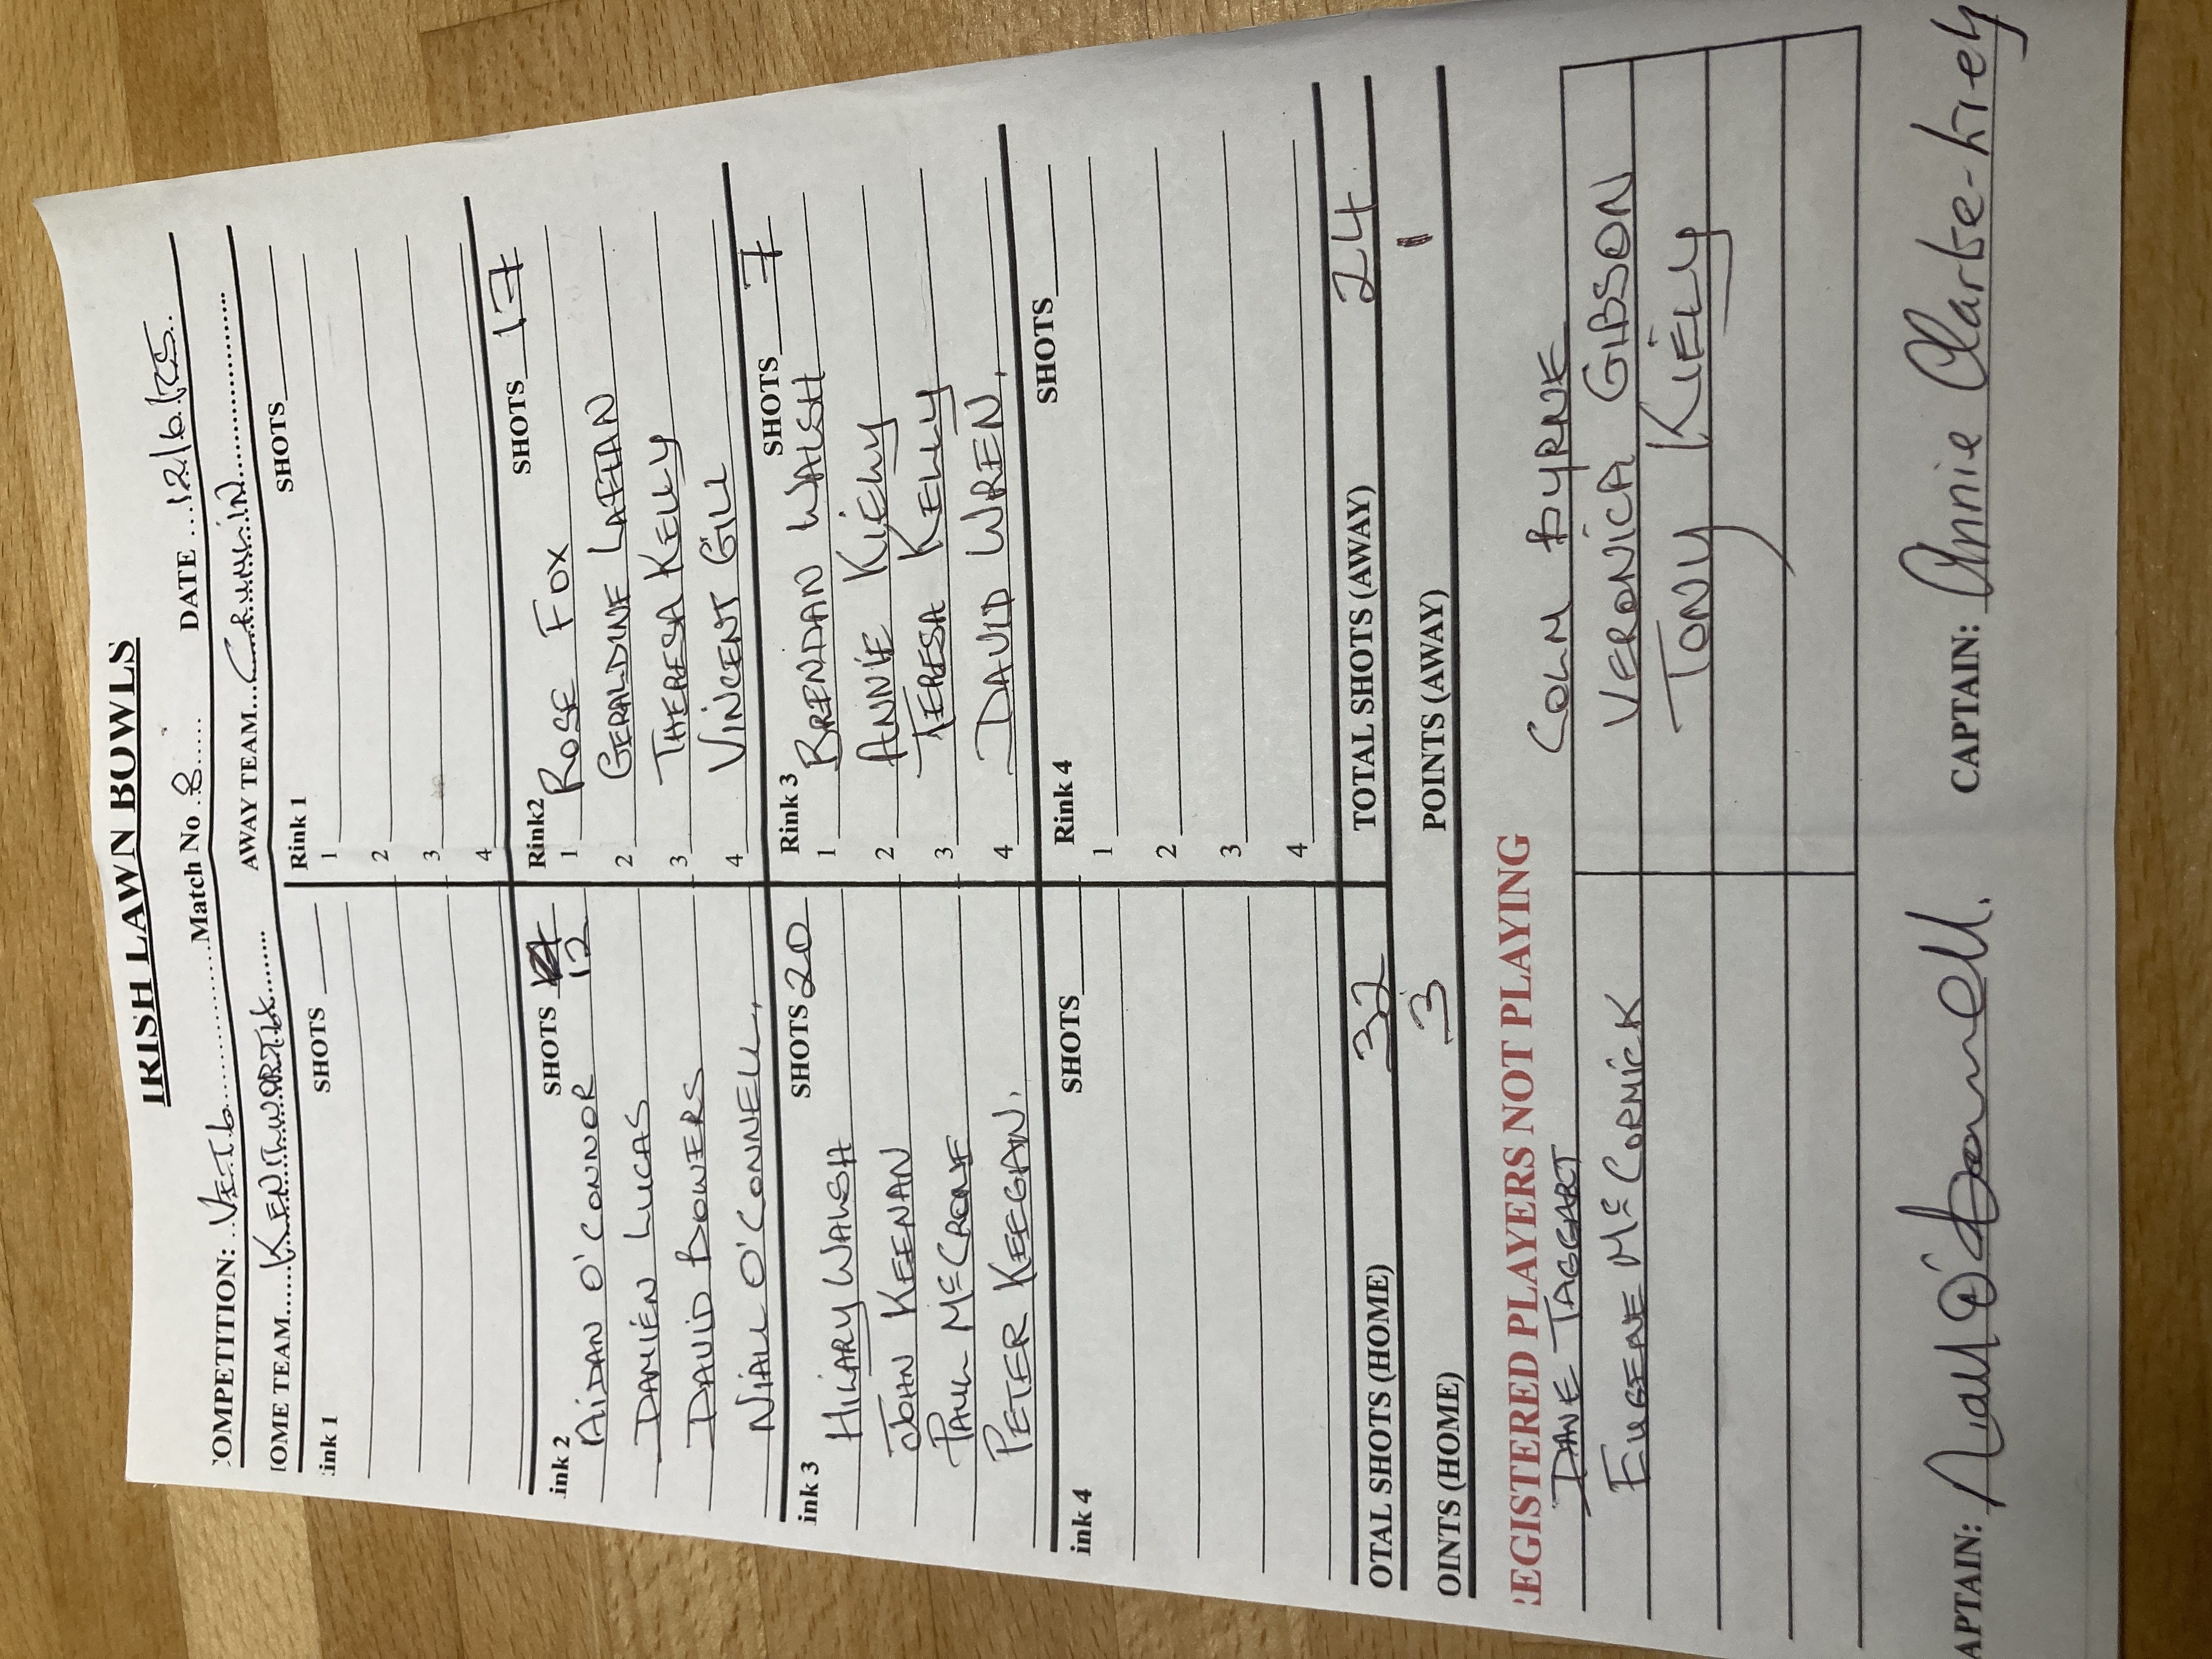 IRISH LAWN BOWLS
OMPETITION: Vet 6 Match No 8 DATE 12/6/25
OME TEAM KENILWORTH AWAY TEAM CRUMLIN
ink 1 SHOTS Rink 1 SHOTS
1
2
3
4
ink 2 SHOTS 12 Rink2 SHOTS 17
AIDAN O'CONNOR 1 ROSE FOX
DAMIEN LUCAS 2 GERALDINE LAFFAN
DAVID BOWERS 3 THERESA KELLY
NIALL O'CONNELL 4 VINCENT GILL
ink 3 SHOTS 20 Rink 3 SHOTS 7
HILARY WALSH 1 BRENDAN WALSH
JOHN KEENAN 2 ANNIE KIELY
PAUL McCRONE 3 TERESA KELLY
PETER KEEGAN. 4 DAVID WREN.
ink 4 SHOTS Rink 4 SHOTS
1
2
3
4
OTAL SHOTS (HOME) 32 TOTAL SHOTS (AWAY) 24
OINTS (HOME) 3 POINTS (AWAY) 1
EGISTERED PLAYERS NOT PLAYING
DANE TAGGART COLM BYRNE
EUGENE McCORMICK VERONICA GIBSON
TONY KIELY
APTAIN: Niall O'Connell. CAPTAIN: Annie Clarke-Kiely